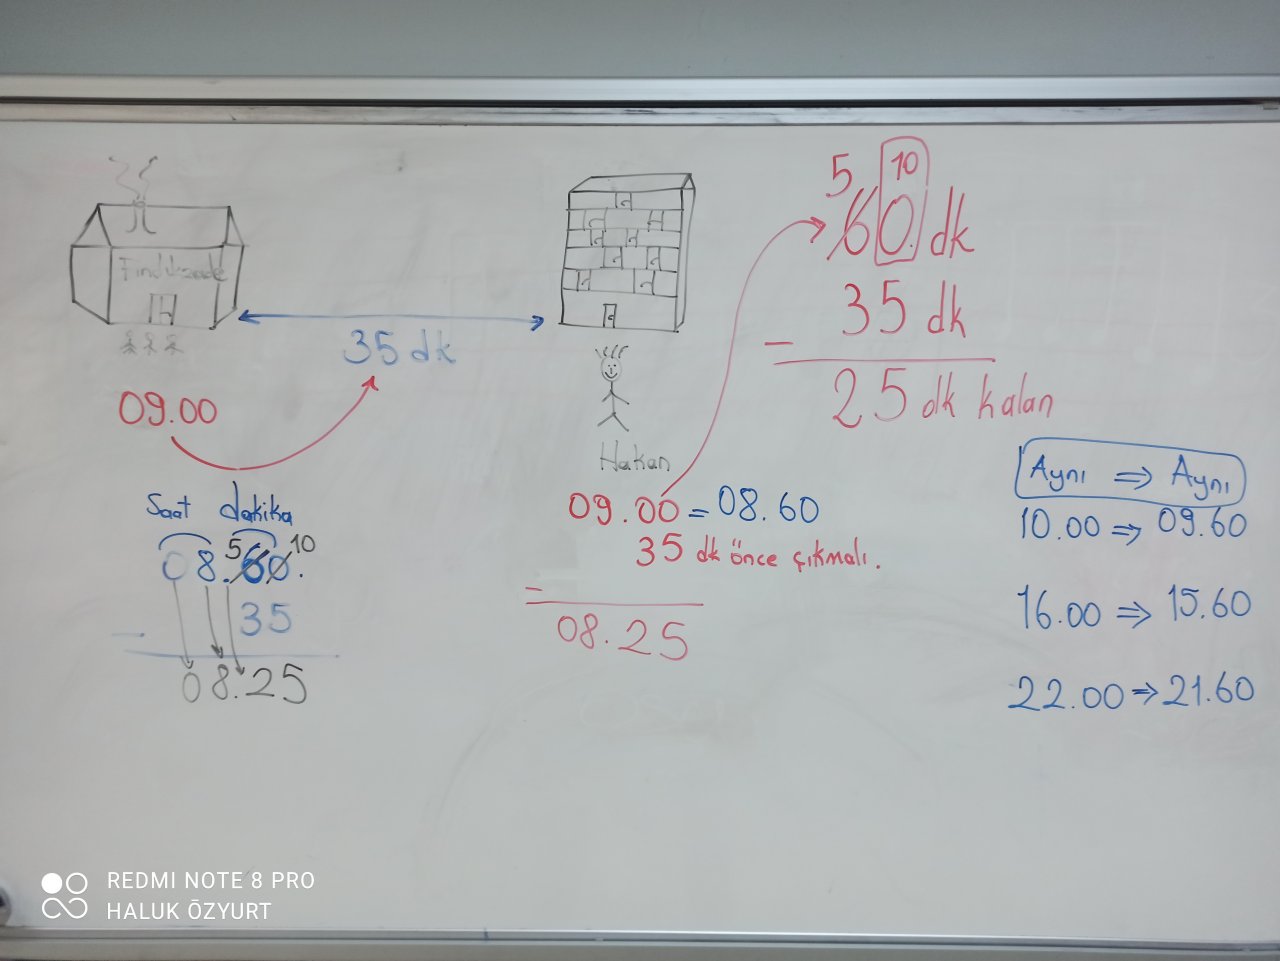 Fındıkzade
35 dk
09.00
Saat dakika
5 10
08.60.
35
-
08.25
Hakan
09.00 = 08.60
35 dk önce çıkmalı.
-
08.25
5 10
60 dk
35 dk
-
25 dk kalan
Aynı ⇒ Aynı
10.00 ⇒ 09.60
16.00 ⇒ 15.60
22.00 ⇒ 21.60
REDMI NOTE 8 PRO
HALUK ÖZYURT